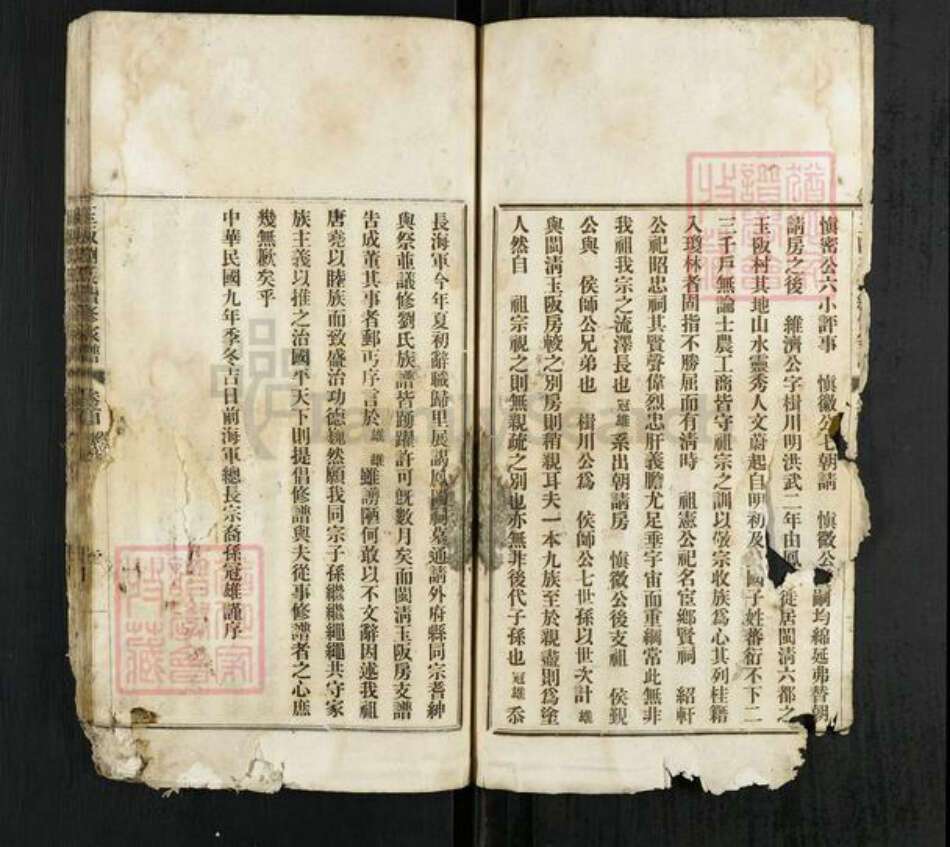 慎密公六小評事 慎徽公七朝請 慎徽公 嗣均綿延弗替朝
請房之後 維濟公字楫川明洪武二年由鳳 徙居閩清六都之
玉阪村其地山水靈秀人文蔚起自明初及 國子姓蕃衍不下二
三千戶無論士農工商皆守祖宗之訓以敬宗收族爲心其列桂籍
入瓊林者固指不勝屈而有清時 祖憲公祀名宦鄉賢祠 紹軒
公祀昭忠祠其賢聲偉烈忠肝義膽尤足垂宇宙而重綱常此無非
我祖我宗之流澤長也冠雄系出朝請房 慎徽公後支祖 侯覲
公與 侯師公兄弟也 楫川公爲 侯師公七世孫以世次計雄
與閩清玉阪房較之別房則稍親耳夫一本九族至於親盡則爲塗
人然自 祖宗視之則無親疏之別也亦無非後代子孫也冠雄忝
長海軍今年夏初辭職歸里展謁鳳岡祠墓通請外府縣同宗耆紳
與祭並議修劉氏族譜皆踴躍許可旣數月矣而閩清玉阪房支譜
告成董其事者郵丐序言於雄雄雖謭陋何敢以不文辭因述我祖
唐堯以睦族而致盛治功德巍然願我同宗子孫繼繼繩繩共守家
族主義以推之治國平天下則提倡修譜與夫從事修譜者之心庶
幾無厭矣乎
中華民國九年季冬吉日前海軍總長宗裔孫冠雄謹序